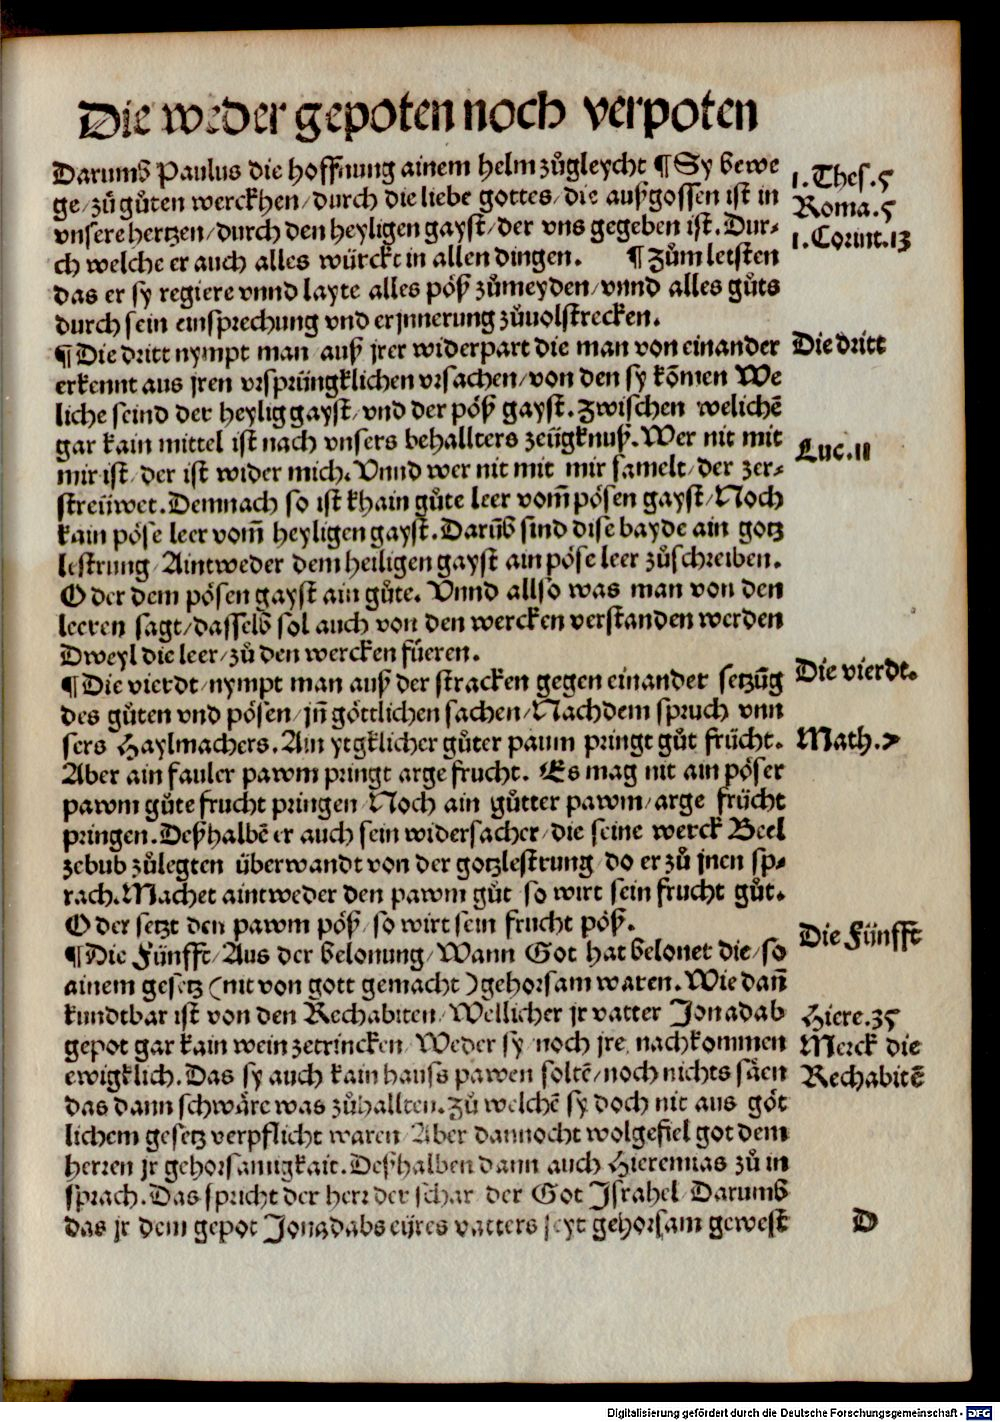 Die weder gepoten noch verpoten
Darumb Paulus die hoffnung ainem helm zůgleycht ¶ Sy bewe
ge/zů gůten werckhen/durch die liebe gottes/die außgossen ist in
vnsere hertzen/durch den heyligen gayst/der vns gegeben ist. Dur⸗
ch welche er auch alles würckt in allen dingen. ¶ Zům letsten
das er sy regiere vnnd layte alles pöß zůmeyden/vnnd alles gůts
durch sein einsprechung vnd erjnnerung zůuolstrecken.
1. Thes. 5
Roma. 5
1. Corint. 13
¶ Die dritt nympt man auß jrer widerpart die man von einander
erkennt aus jren vrsprüngklichen vrsachen/von den sy kōmen We
liche seind der heylig gayst/vnd der pöß gayst. Zwischen welichē
gar kain mittel ist nach vnsers behallters zeügknuß. Wer nit mit
mir ist/der ist wider mich. Vnnd wer nit mit mir samelt/der zer⸗
streüwet. Demnach so ist khain gůte leer vom̄ pösen gayst/Noch
kain pöse leer vom̄ heyligen gayst. Darūb sind dise bayde ain gotz
lestrung/Aintweder dem heiligen gayst ain pöse leer zůschreiben.
Oder dem pösen gayst ain gůte. Vnnd allso was man von den
leeren sagt/dasselb sol auch von den wercken verstanden werden
Dweyl die leer/zů den wercken füeren.
Die dritt
Luc. 11
¶ Die vierdt/nympt man auß der stracken gegen einander setzūg
des gůten vnd pösen/jn̄ göttlichen sachen/Nach dem spruch vnn
sers Haylmachers. Ain ytgklicher gůter paum pringt gůt frücht.
Aber ain fauler pawm pringt arge frucht. Es mag nit ain pöser
pawm gůte frucht pringen/Noch ain gůtter pawm/arge frücht
pringen. Deßhalbē er auch sein widersacher/die seine werck Beel
zebub zůlegten überwandt von der gotzlestrung/do er zů jnen sp⸗
rach. Machet aintweder den pawm gůt so wirt sein frucht gůt.
Oder setzt den pawm pöß/so wirt sein frucht pöß.
Die vierdt.
Math. 7
¶ Die Fünfft/Aus der belonung/Wann Got hat belonet die/so
ainem gesetz (nit von gott gemacht) gehorsam waren. Wie dan̄
kundtbar ist von den Rechabiten/Wellicher jr vatter Jonadab
gepot gar kain wein zetrincken/Weder sy noch jre nachkommen
ewigklich. Das sy auch kain hauss pawen soltē/noch nichts säen
das dann schwäre was zůhallten. Zů welchē sy doch nit aus göt
lichem gesetz verpflicht waren/Aber dannocht wolgefiel got dem
herren jr gehorsamigkait. Deßhalben dann auch Hieremias zů in
sprach. Das spricht der herr der schar der Got Jsrahel/Darumb
das jr dem gepot Jonadabs eüres vatters seyt gehorsam gewest
Die Fünfft
Hiere. 35
Merck die
Rechabitē
D
Digitalisierung gefördert durch die Deutsche Forschungsgemeinschaft - DFG